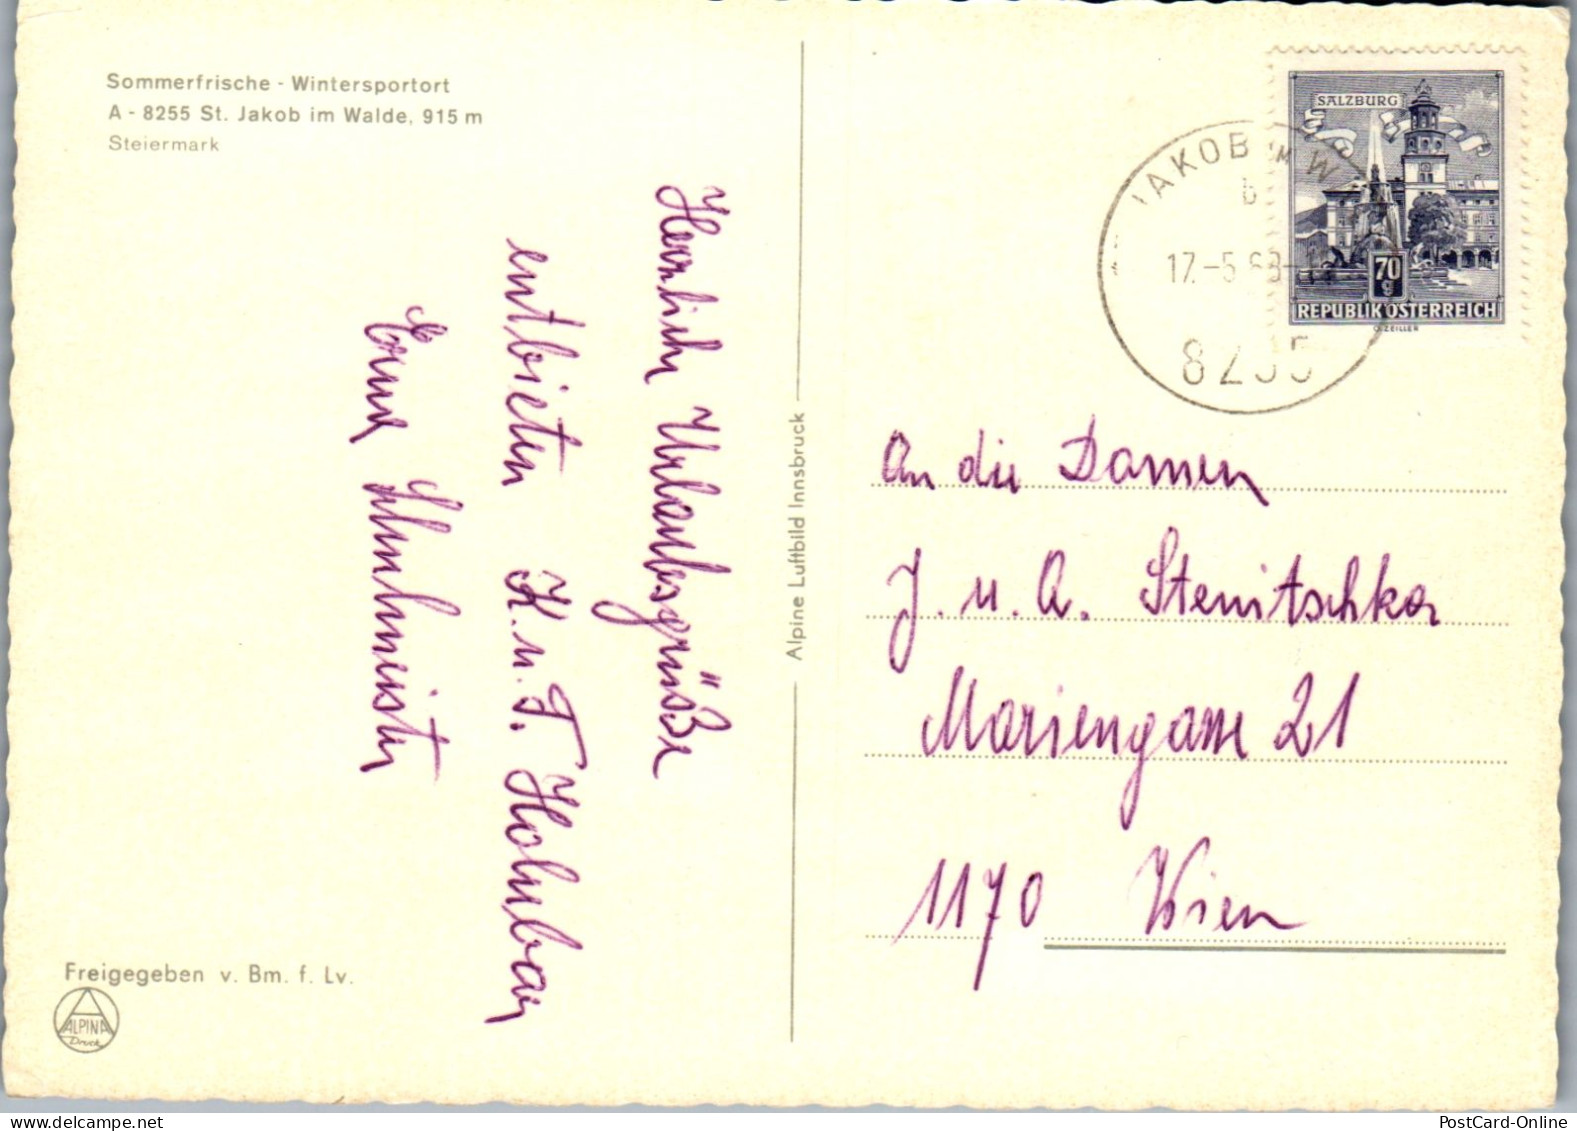 Sommerfrische - Wintersportort
A - 8255 St. Jakob im Walde, 915 m
Steiermark
Herzlich Urlaubsgrüße
entbieten K. u. T.
Erna
Freigegeben v. Bm. f. Lv.
ALPINA
Druck
Alpine Luftbild Innsbruck
JAKOB IM W
b
17.-5.68
8255
SALZBURG
70
g
REPUBLIK ÖSTERREICH
O. ZEILLER
An die Damen
J. u. A. Stenitschka
Mariengasse 21
1170 Wien
PostCard-Online